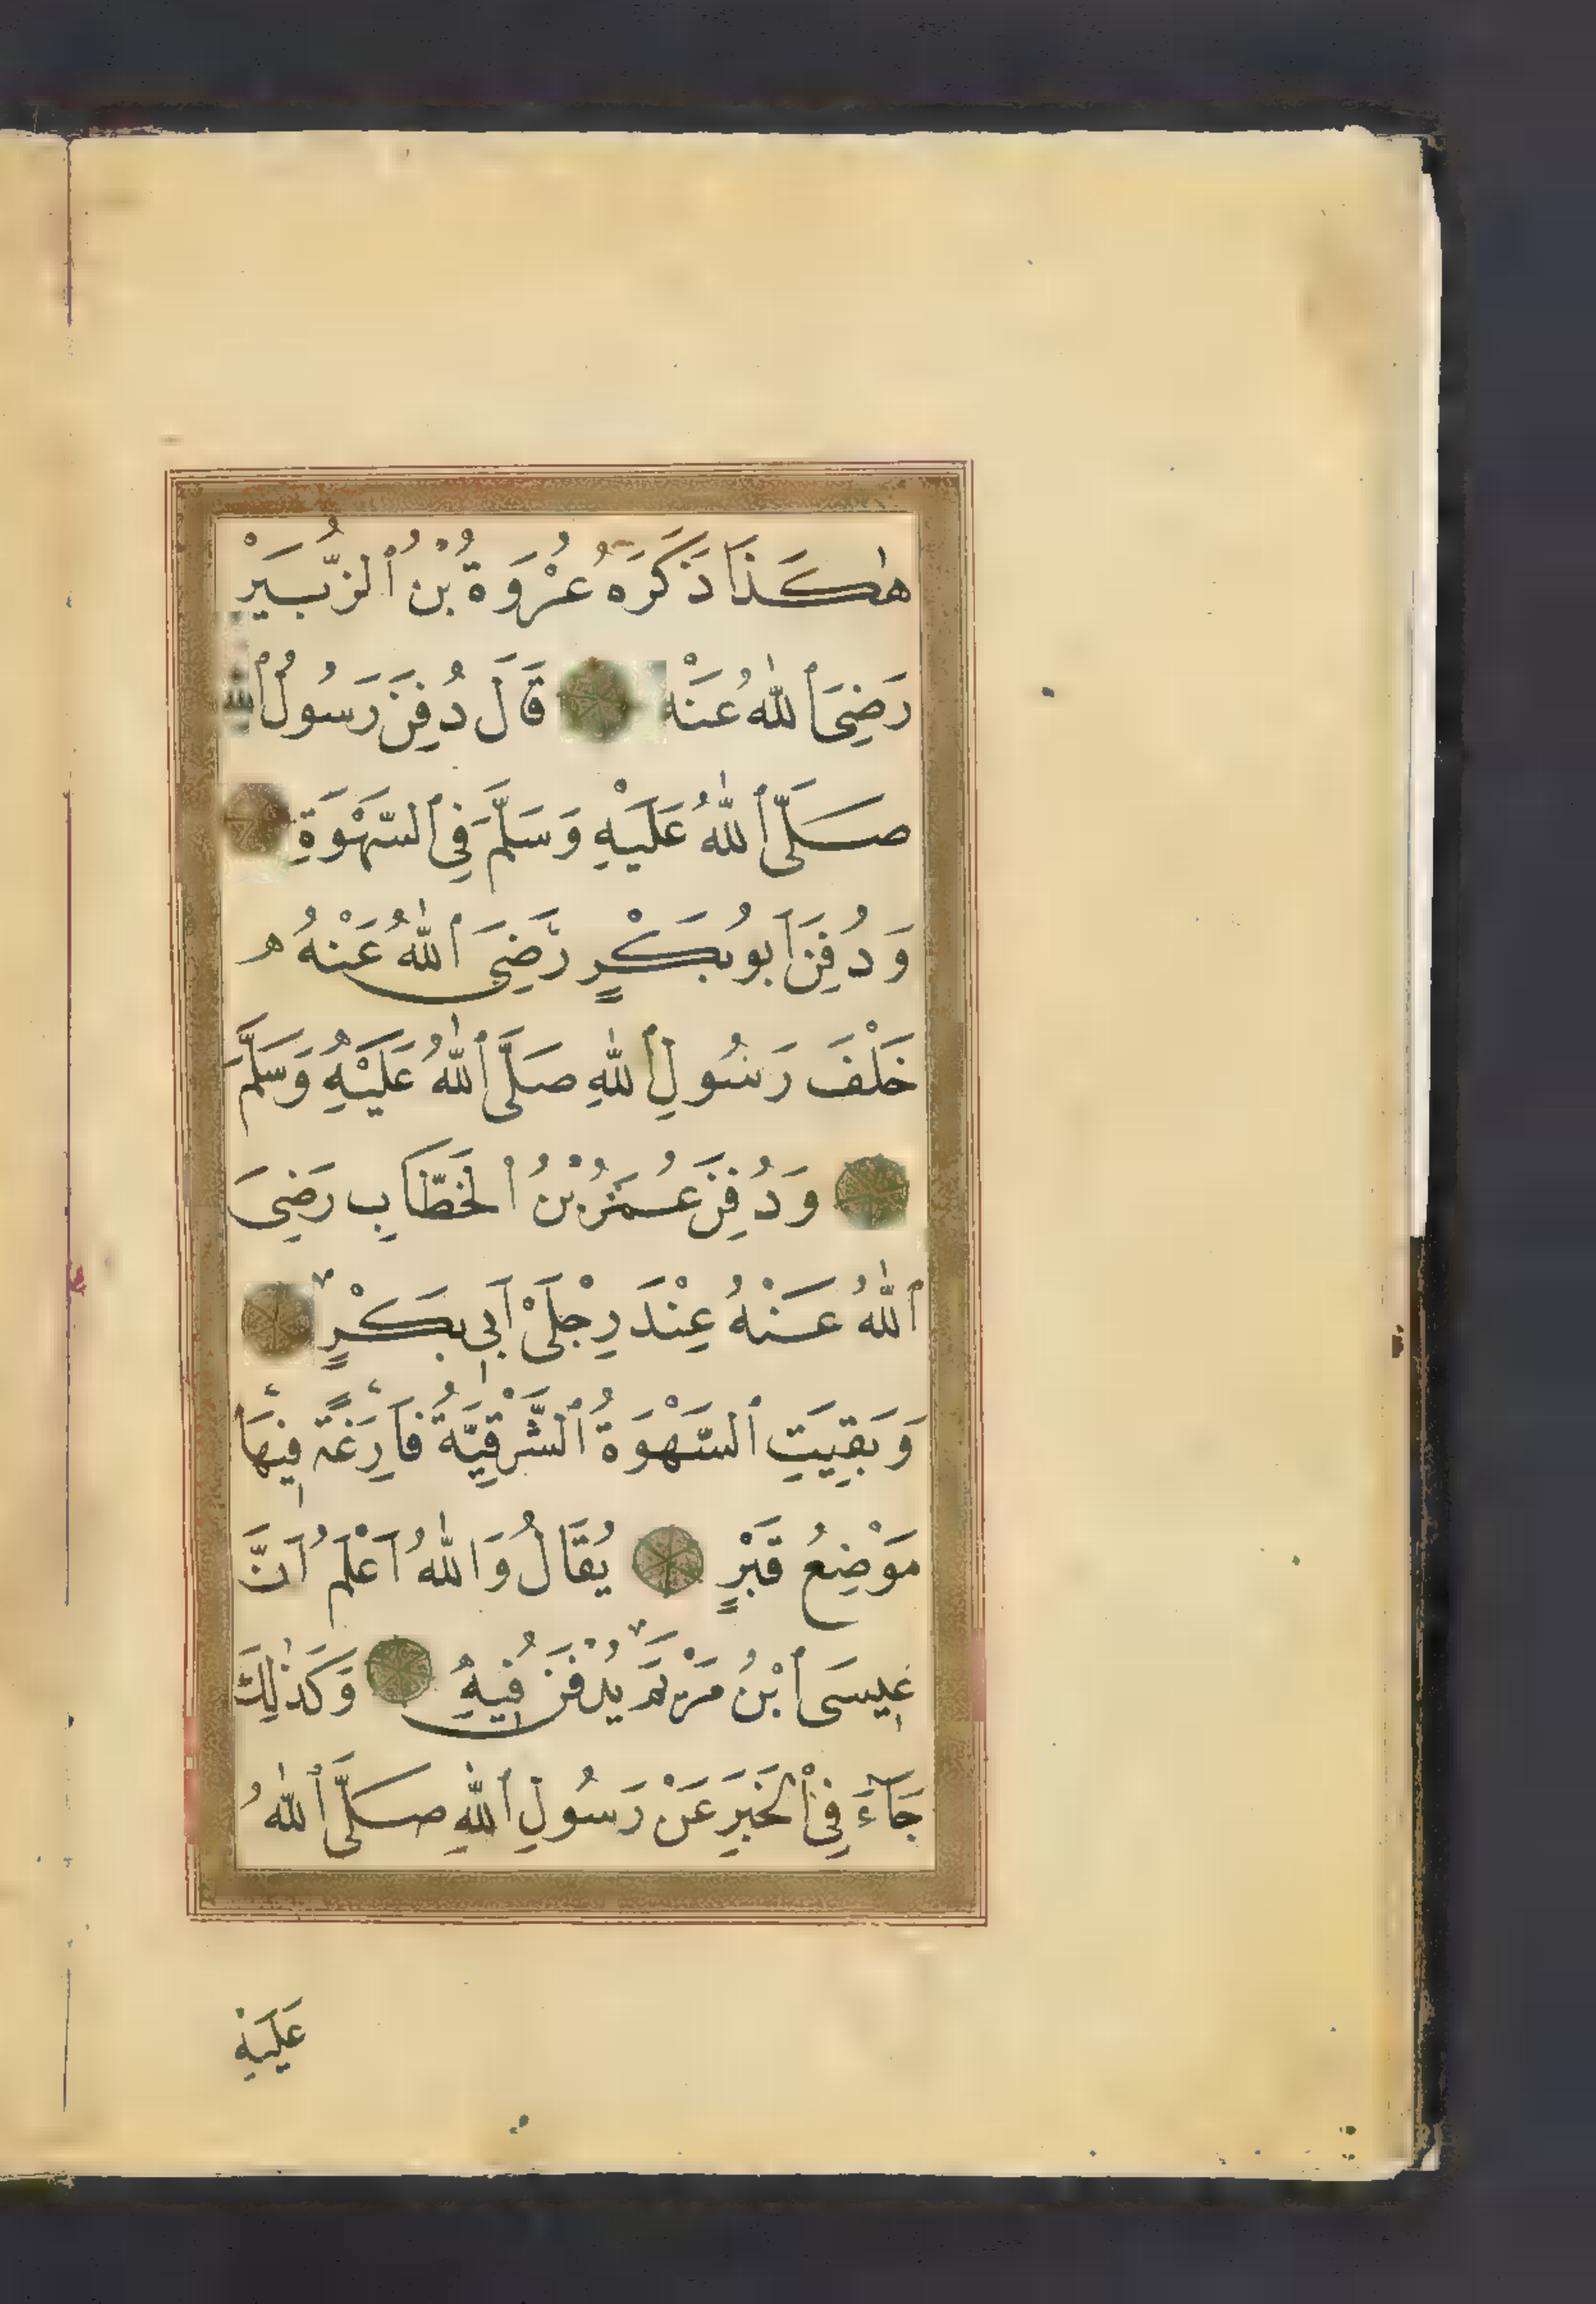 هٰكَذَا ذَكَرَهُ عُرْوَةُ بْنُ ٱلزُّبَيْرِ
رَضِيَ ٱللّٰهُ عَنْهُ قَالَ دُفِنَ رَسُولُ ٱللّٰهِ
صَلَّى ٱللّٰهُ عَلَيْهِ وَسَلَّمَ فِي ٱلسَّهْوَةِ
وَدُفِنَ أَبُو بَكْرٍ رَّضِيَ ٱللّٰهُ عَنْهُ
خَلْفَ رَسُولِ ٱللّٰهِ صَلَّى ٱللّٰهُ عَلَيْهِ وَسَلَّمَ
وَدُفِنَ عُمَرُ بْنُ ٱلْخَطَّابِ رَضِيَ
ٱللّٰهُ عَنْهُ عِنْدَ رِجْلَيْ أَبِي بَكْرٍ
وَبَقِيَتِ ٱلسَّهْوَةُ ٱلشَّرْقِيَّةُ فَارِغَةً فِيهَا
مَوْضِعُ قَبْرٍ يُقَالُ وَاللّٰهُ اَعْلَمُ اَنَّ
عِيسَى ٱبْنُ مَرْيَمَ يُدْفَنُ فِيهِ وَكَذٰلِكَ
جَآءَ فِي ٱلْخَبَرِ عَنْ رَسُولِ ٱللّٰهِ صَلَّى ٱللّٰهُ
عَلَيْهِ